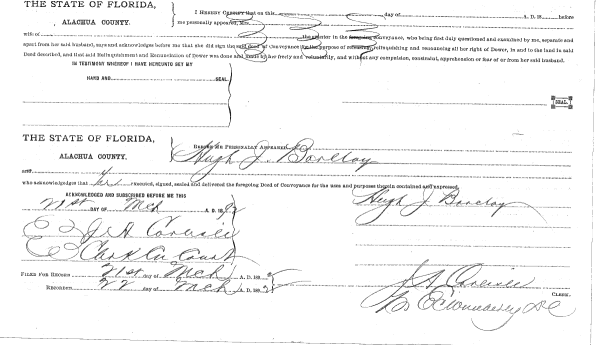 THE STATE OF FLORIDA,
ALACHUA COUNTY.
I HEREBY CERTIFY that on this day of A. D. 18 before
me personally appeared, Mrs.
wife of the grantor in the foregoing conveyance, who being first duly questioned and examined by me, separate and
apart from her said husband, says and acknowledges before me that she did sign the said deed of Conveyance for the purpose of relinquishing and renouncing all her right of Dower, in and to the land in said
Deed described, and that said Relinquishment and Renunciation of Dower was done and made by her freely and voluntarily, and without any compulsion, constraint, apprehension or fear of or from her said husband.
IN TESTIMONY WHEREOF I HAVE HEREUNTO SET MY
HAND AND SEAL.
SEAL.
THE STATE OF FLORIDA,
ALACHUA COUNTY.
BEFORE ME PERSONALLY APPEARED
Hugh J. Barclay
AND
who acknowledges that he executed, signed, sealed and delivered the foregoing Deed of Conveyance for the uses and purposes therein contained and expressed.
ACKNOWLEDGED AND SUBSCRIBED BEFORE ME THIS
21st DAY OF Mch A. D. 18
Hugh J Barclay
J. A. Carlisle
Clerk Cir Court
FILED FOR RECORD 21st day of Mch A. D. 18
RECORDED 22 day of Mch A. D. 18
J A Carlisle
CLERK.